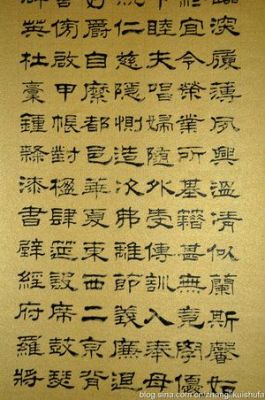 深履薄夙興溫凊似蘭斯馨如
宜令榮業所基籍甚無竟學優
睦夫唱婦隨外受傅訓入奉母
仁慈隱惻造次弗離節義廉退
爵自縻都邑華夏東西二京背
傍啟甲帳對楹肆筵設席鼓瑟
英杜稾鍾隸漆書壁經府羅將
blog.sina.com.cn/zhangkuishufa